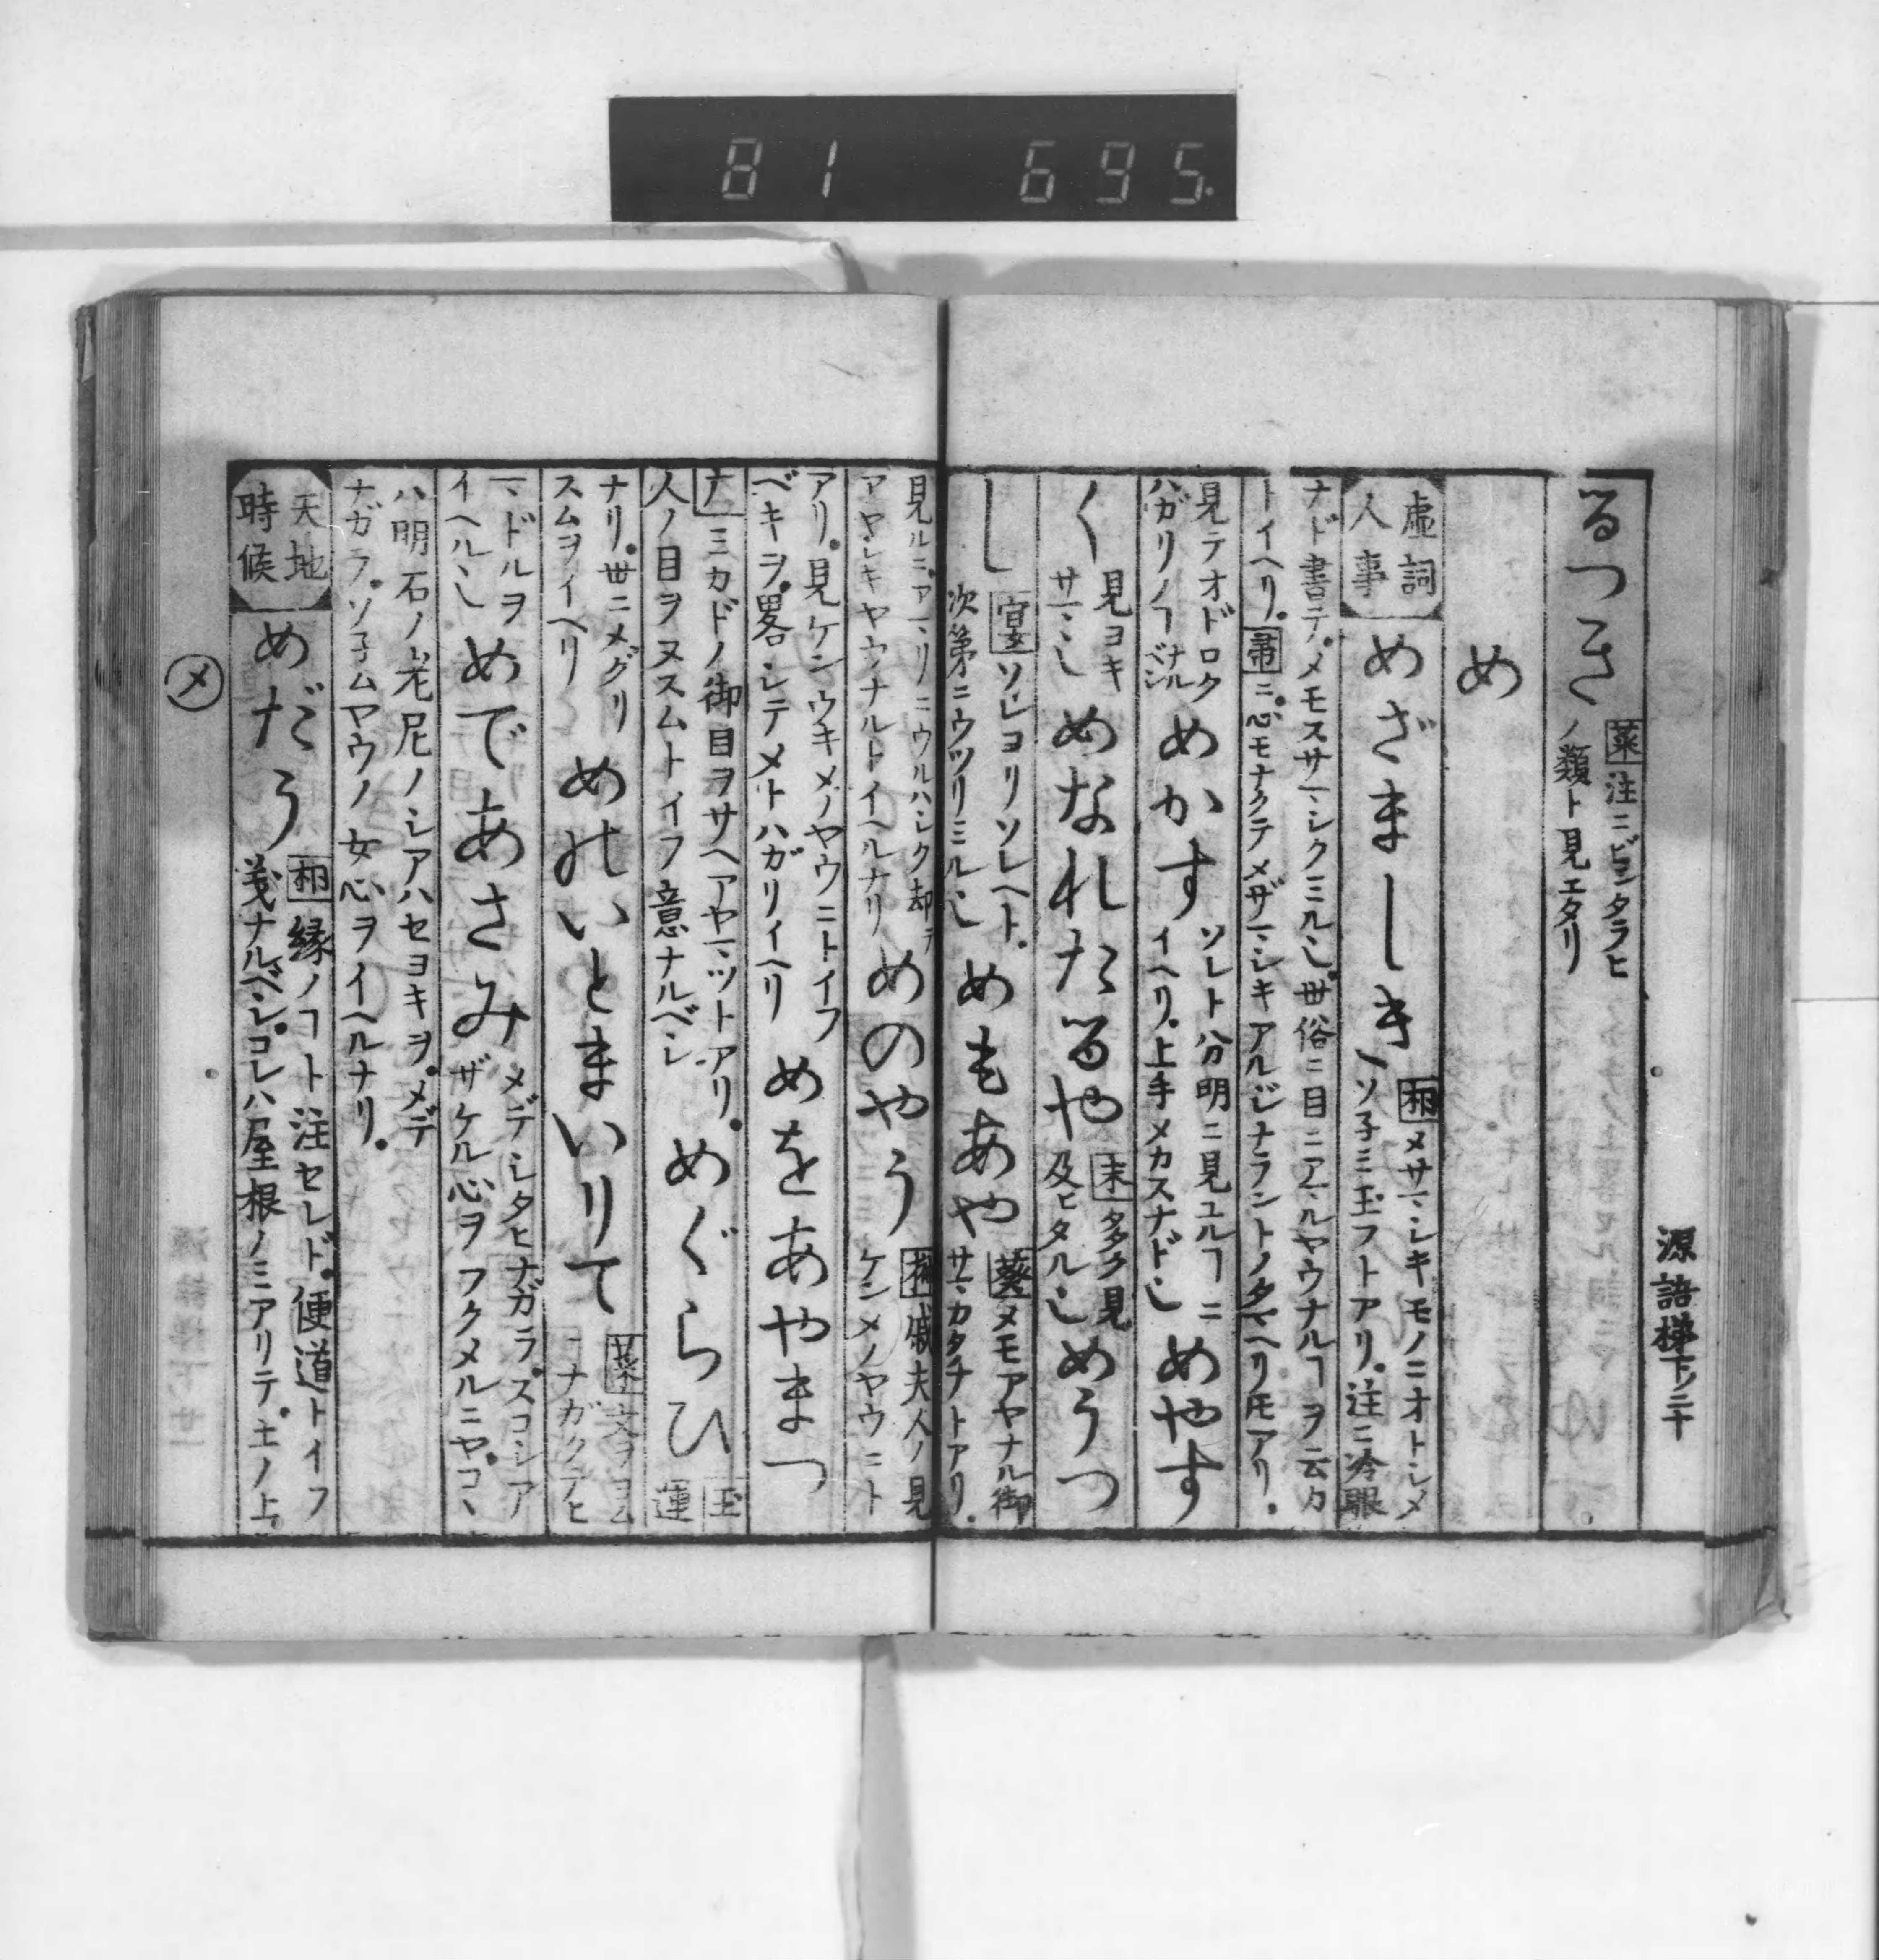 81 695
源語梯下ノ三十
るつき
菜 注ニビンタラヒ
ノ類ト見エタリ
め
虚詞
人事
めざましき
桐 メサマシキモノニオトシメ
ソ子ミ玉フトアリ。注ニ冷眼
ナド書テ。メモスサマシクミルヿ。世俗ニ目ニアマルヤウナルヿヲ云カ
トイヘリ。帚ニ。心モナクテメザマシキアルジナラントノタマヘリモアリ。
見テオドロク
ハカリノヿナルベシ
めかす
ソレト分明ニ見ユルヿニ
イヘリ。上手メカスナドヿ
めやす
く
見ヨキ
サマヿ
めなれたるや
末 多ク見
及ヒタルヿ
めうつ
し
宴 ソレヨリソレヘト。
次第ニウツリミルヿ
めもあや
葵 メモアヤナル御
サマカタチトアリ。
見ルニ。アマリニウルハシク却テ
アヤシキヤウナルトイヘルナリ
めのやう
榊 戚夫人ノ見
ケンメノヤウニト
アリ。見ケンウキメノヤウニトイフ
ベキヲ。畧シテメトハガリイヘリ
めをあやまつ
ミカドノ御目ヲサヘアヤマツトアリ。
人ノ目ヲヌスムトイフ意ナルベシ
めぐらひ
玉
蓮
ナリ。世ニメグリ
スムヲイヘリ
めれいとまいりて
菜 文ヲヨム
ニナガクテヒ
マドルヲ
イヘルヿ
めであさみ
メデシタヒナガラ。スコシア
ザケル心ヲフクメルニヤ。コヽ
ハ明石ノ老尼ノシアハセヨキヲ。メデ
ナガラ。ソ子ムヤウノ女心ヲイヘルナリ。
天地
時候
めだう
桐 縁ノヿト注セレド。便道トイフ
義ナルベシ。コレハ屋根ノミアリテ。土ノ上
メ